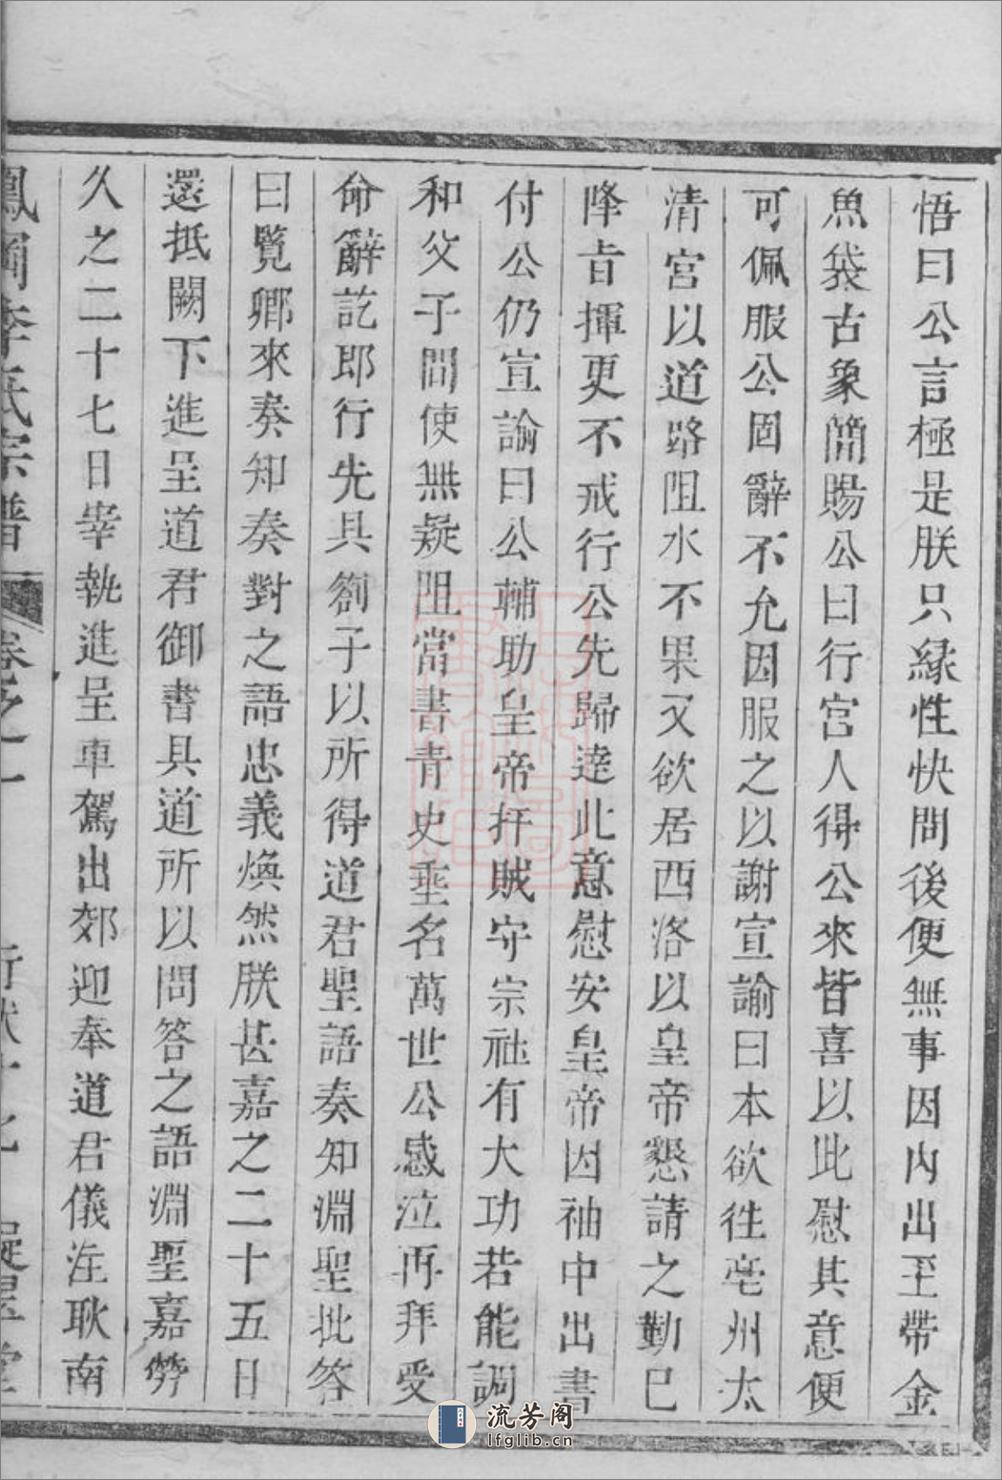 悟曰公言極是朕只緣性快問後便無事因內出玉帶金
魚袋古象簡賜公曰行宮人得公來皆喜以此慰其意便
可佩服公固辭不允因服之以謝宣諭曰本欲徃亳州太
清宮以道路阻水不果又欲居西洛以皇帝懇請之勤已
降旨揮更不戒行公先歸達此意慰安皇帝因袖中出書
付公仍宣諭曰公輔助皇帝扞賊守宗社有大功若能調
和父子間使無疑阻當書青史垂名萬世公感泣再拜受
命辭訖即行先具劄子以所得道君聖語奏知淵聖批答
曰覽卿來奏知奏對之語忠義煥然朕甚嘉之二十五日
還抵闕下進呈道君御書具道所以問答之語淵聖嘉勞
久之二十七日宰執進呈車駕出郊迎奉道君儀注耿南
李氏宗譜 卷之一
流芳阁
lfglib.cn